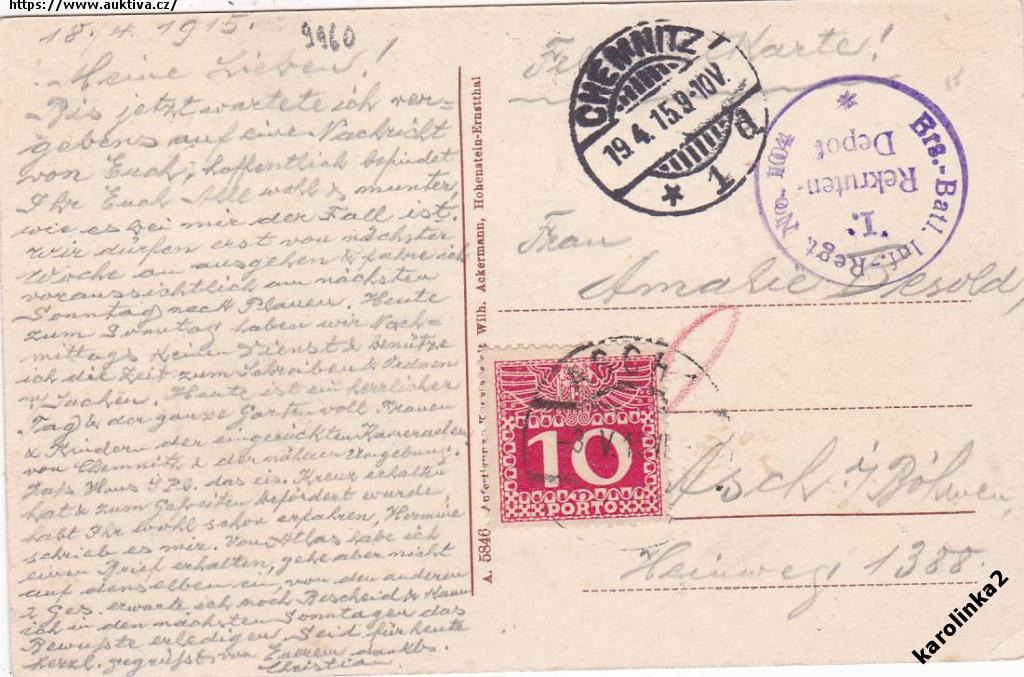 https://www.auktiva.cz/
18./4. 1915.
9960
Meine Lieben!
Bis jetzt wartete ich ver-
gebens auf eine Nachricht
von Euch, hoffentlich befindet
Ihr Euch Alle wohl & munter,
wie es bei mir der Fall ist.
Wir dürfen erst von nächster
Woche an ausgehen & fahre ich
voraussichtlich am nächsten
Sonntag nach Plauen. Heute
zum Sonntag haben wir Nach-
mittags keinen Dienst & benütze
ich die Zeit zum Schreiben & Ordnen
m/Sachen. Heute ist ein herrlicher
Tag & der ganze Garten voll Frauen
& Kindern der eingerückten Kameraden
von Chemnitz & der näheren Umgebung.
Daß Hans das eis. Kreuz erhalten
hat & zum Gefreiten befördert wurde,
habt Ihr wohl schon erfahren, Hermine
schrieb es mir. Von Atlas habe ich
einen Brief erhalten, gehe aber nicht
auf denselben ein, von den anderen
2 Ges. erwarte ich noch Bescheid & kann
ich in den nächsten Sonntagen das
Bewußte erledigen. Seid für heute
herzl. gegrüßt von Eurem dankb.
Christian.
A. 5846 Wilh. Ackermann, Hohenstein-Ernstthal
Karte!
CHEMNITZ 1
19.4.15.9-10V.
* 1 d
Ers.-Batl. Inf.-Regt. No. 104
I.
Rekruten-
Depot
*
Frau
Amalie
10
PORTO
Asch i/Böhmen
Heinweg 1388.
karolinka2